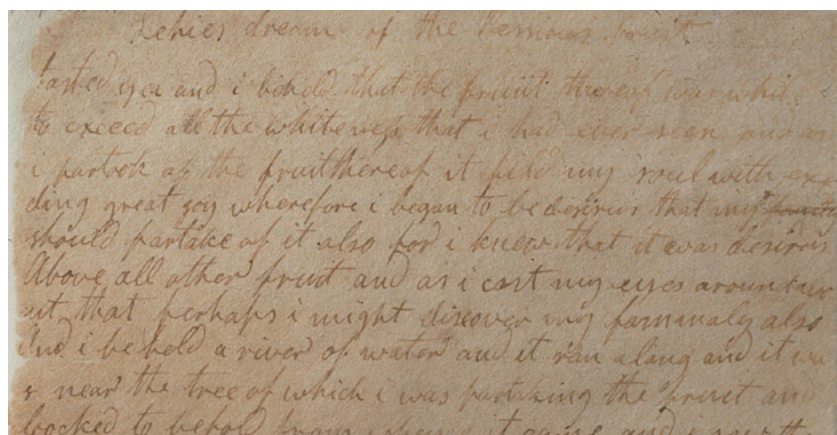 Lehies dream of the
tasted yea and i beheld that the fruiit thereof was whit
to exceed all the whiteness that i had ever seen and as
i partook of the fruit thereof it feld my soul with exe
ding great goy wherefore i began to be desirus that my
should partake of it also for i knew that it was desirus
Above all other fruit and as i cast my eyes around
ut that perhaps i might discover my fammaly also
And i beheld a river of water and it ran along and it wa
s near the tree of which i was partaking the fruet and
loocked to behold from whence it came and i saw th